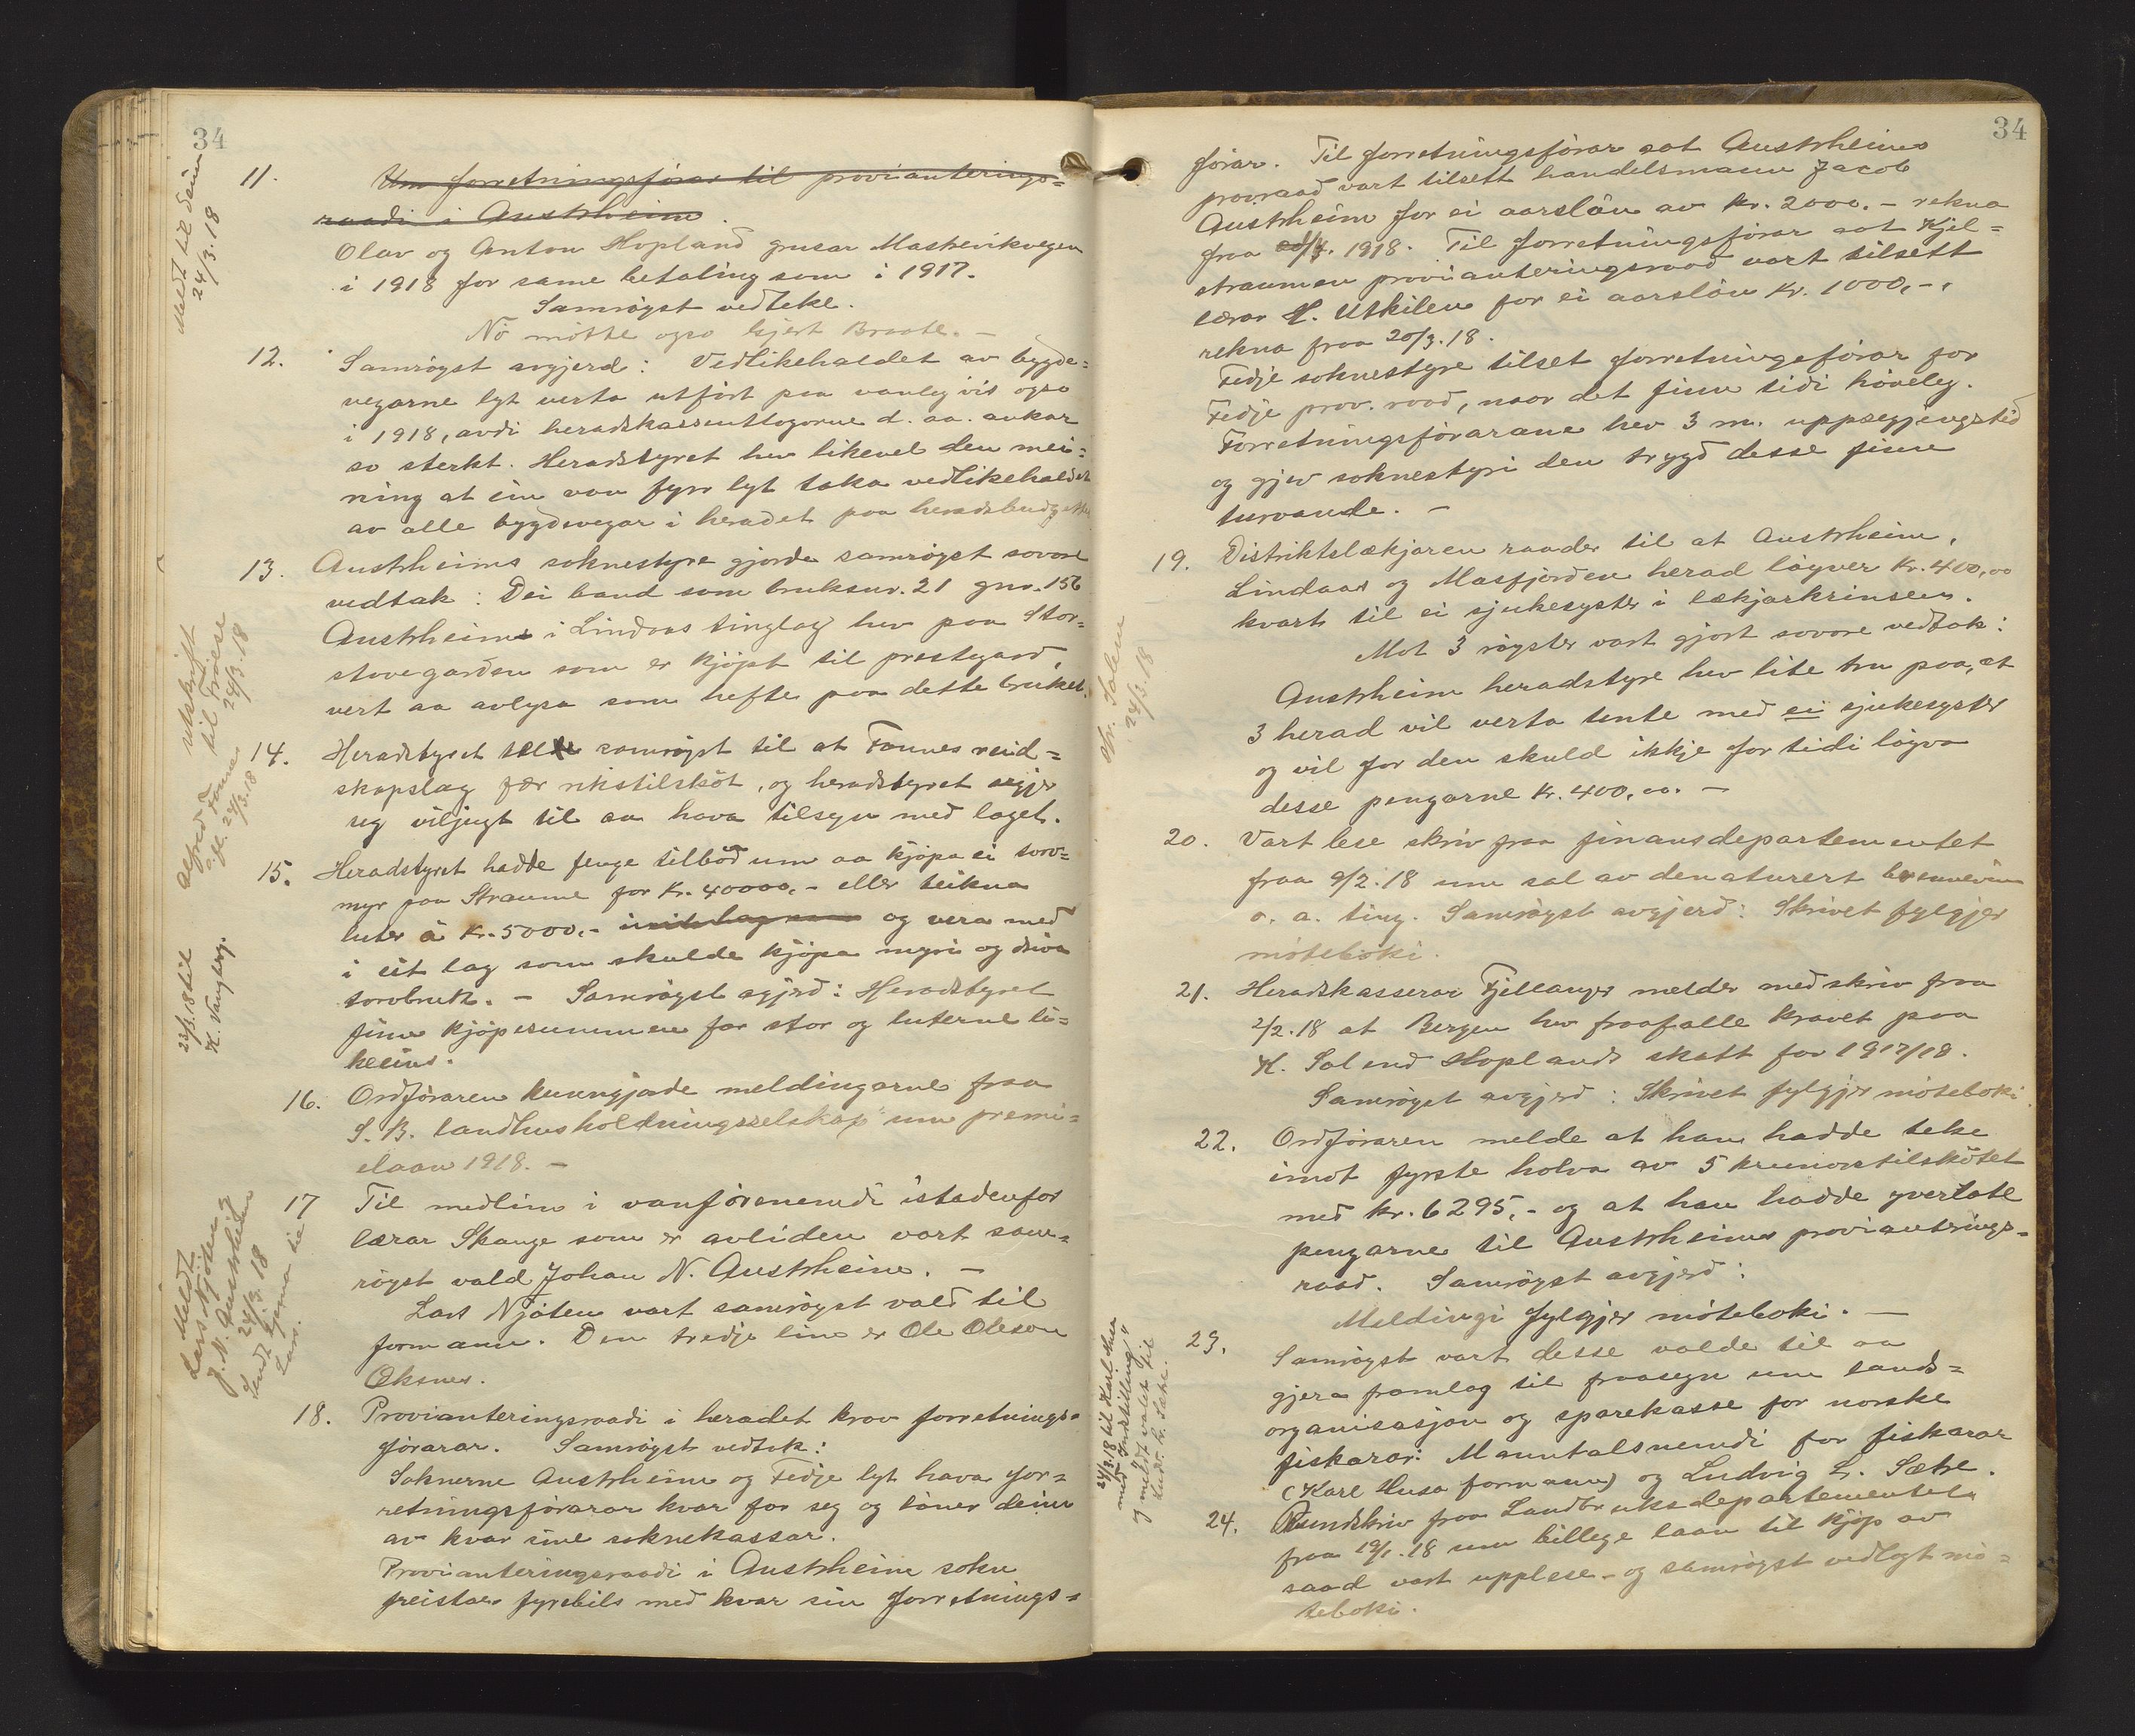 34
Meldt til deim
24/3.18
11. Um forretningsførar til provianterings=
raadi i Austrheim.
Olav og Anton Hopland grusar Mastrevikvegen
i 1918 for same betaling som i 1917.
Samrøyst vedteke.
No møtte ogso Gjert Braate. —
12. Samrøyst avgjerd: Vedlikehaldet av bygde=
vegarne lyt verta utført paa vanleg vis ogso
i 1918, avdi heradskassentlogorne d. aa. aukar
so sterkt. Heradstyret hev likevel den mei=
ning at ein von fyrr lyt taka vedlikehaldet
av alle bygdevegar i heradet paa heradsbudgettet
13. Austrheims soknestyre gjorde samrøyst sovore
vedtak: Dei band som bruksnr. 21 gnr. 156
Austrheim i Lindaas tinglag hev paa Stor=
stovegarden som er kjøpt til prestegard,
vert aa avlysa som hefte paa dette bruket.
utskrift
til Troiese
24/3.18
14. Heradstyret samrøyst til at Fonnes reid=
skapslag fær rikstilskot, og heradstyret segjer
seg viljugt til aa hava tilsyn med laget.
Alfred Fonnes
24/3.18
15. Heradstyret hadde fenge tilbod um aa kjøpa ei torv=
myr paa Straume for kr. 40000,- eller teikna
luter à kr. 5000,- og vera med
i eit lag som skulde kjøpa myri og driva
torvbruk. — Samrøyst avgjerd: Heradstyret
finn kjøpesummen for stor og luterne li=
keeins.
23/3.18 til
K. Vangberg.
16. Ordføraren kunngjorde meldingarne fraa
S. B. landhusholdningsselskap um premi=
elaan 1918. —
17 Til medlim i vanførenemdi istadenfor
lærar Skauge som er avliden vart sam=
røyst vald Johan N. Austrheim. —
Lars Njøten vart samrøyst vald til
formann. Den tredje lim er Ole Oleson
Øksnes.
Meldt
Lars Njøten og
J. N. Austrheim
24/3.18
Sendt skjema til
Lars.
18. Provianteringsraadi i heradet krev forretnings=
førarar. Samrøyst vedtak:
Soknerne Austrheim og Fedje lyt hava for=
retningsførarar kvar for seg og løner deim
av kvar sine soknekassar.
Provianteringsraadi i Austrheim sokn
freistar fyrebils med kvar sin forretnings=
34
førar. Til forretningsførar aat Austrheims
provraad vart tilsett handelsmann Jacob
Austrheim for ei aarsløn av kr. 2000.- rekna
fraa 1918. Til forretningsførar aat Kjel=
straumen provianteringsraad vart tilsett
lærar H. Utkilen for ei aarsløn kr. 1000,-,
rekna fraa 20/3.18.
Fedje soknestyre tilset forretningsførar for
Fedje prov. raad, naar det finn tidi høveleg.
Forretningsførarane hev 3 m. uppsegjingstid
og gjev soknestyri den trygd desse finn
turvande. —
19. Distriktslækjaren raader til at Austrheim,
Lindaas og Masfjorden herad løyver kr. 400,00
kvart til ei sjukesyster i lækjarkrinsen.
Mot 3 røyster vart gjort sovore vedtak:
Austrheim heradstyre hev lite tru paa, at
3 herad vil verta tente med ei sjukesyster
og vil for den skuld ikkje for tidi løyva
desse pengarne kr. 400,00. —
Dr. Solem
24/3.18
20. Vart lese skriv fraa finansdepartementet
fraa 9/2.18 um sal av denaturert brennevin
o. a. ting. Samrøyst avgjerd: Skrivet fylgjer
møteboki.
21. Heradskasserar Fjellanger melder med skriv fraa
2/2.18 at Bergen hev fraafalle kravet paa
K. Salend Hoplands skatt for 1917/18.
Samrøyst avgjerd: Skrivet fylgjer møteboki.
22. Ordføraren melde at han hadde teke
imot fyrste holva av 5 kronorstilskotet
med kr. 6295,- og at han hadde yverlate
pengarne til Austrheims provianterings=
raad. Samrøyst avgjerd:
Meldingi fylgjer møteboki. —
23. Samrøyst vart desse valde til aa
gjera framlag til fraasegn um lands=
organisasjon og sparekasse for norske
fiskarar: Manntalsnemdi for fiskarar
(Karl Husa formann) og Ludvig L. Sætre.
24/3.18 til Karl Husa
med "Innstilling"
og meldt valet til
Ludv. L. Sætre.
24. Rundskriv fraa Landbruksdepartementet
fraa 19/1.18 um billege laan til kjøp av
saad vart upplese - og samrøyst vedlagt mø=
teboki.